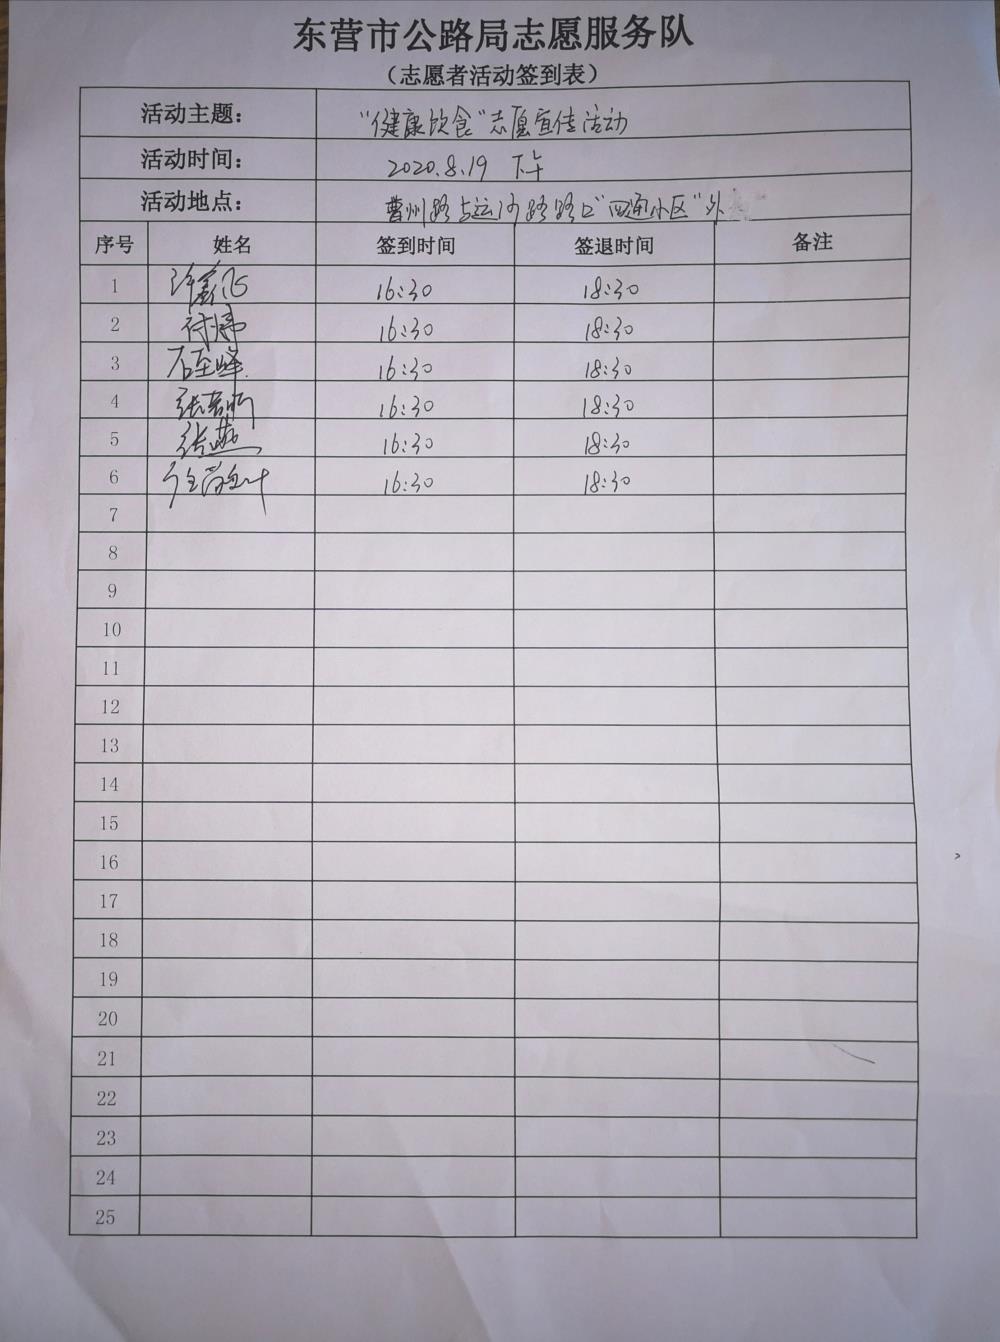 东营市公路局志愿服务队
（志愿者活动签到表）
活动主题： “健康饮食”志愿宣传活动
活动时间： 2020.8.19 下午
活动地点： 曹州路与运河路路口“四通小区”外
序号 姓名 签到时间 签退时间 备注
1 16:30 18:30
2 付炜 16:30 18:30
3 石至峰 16:30 18:30
4 张 16:30 18:30
5 张燕 16:30 18:30
6 16:30 18:30
7
8
9
10
11
12
13
14
15
16
17
18
19
20
21
22
23
24
25